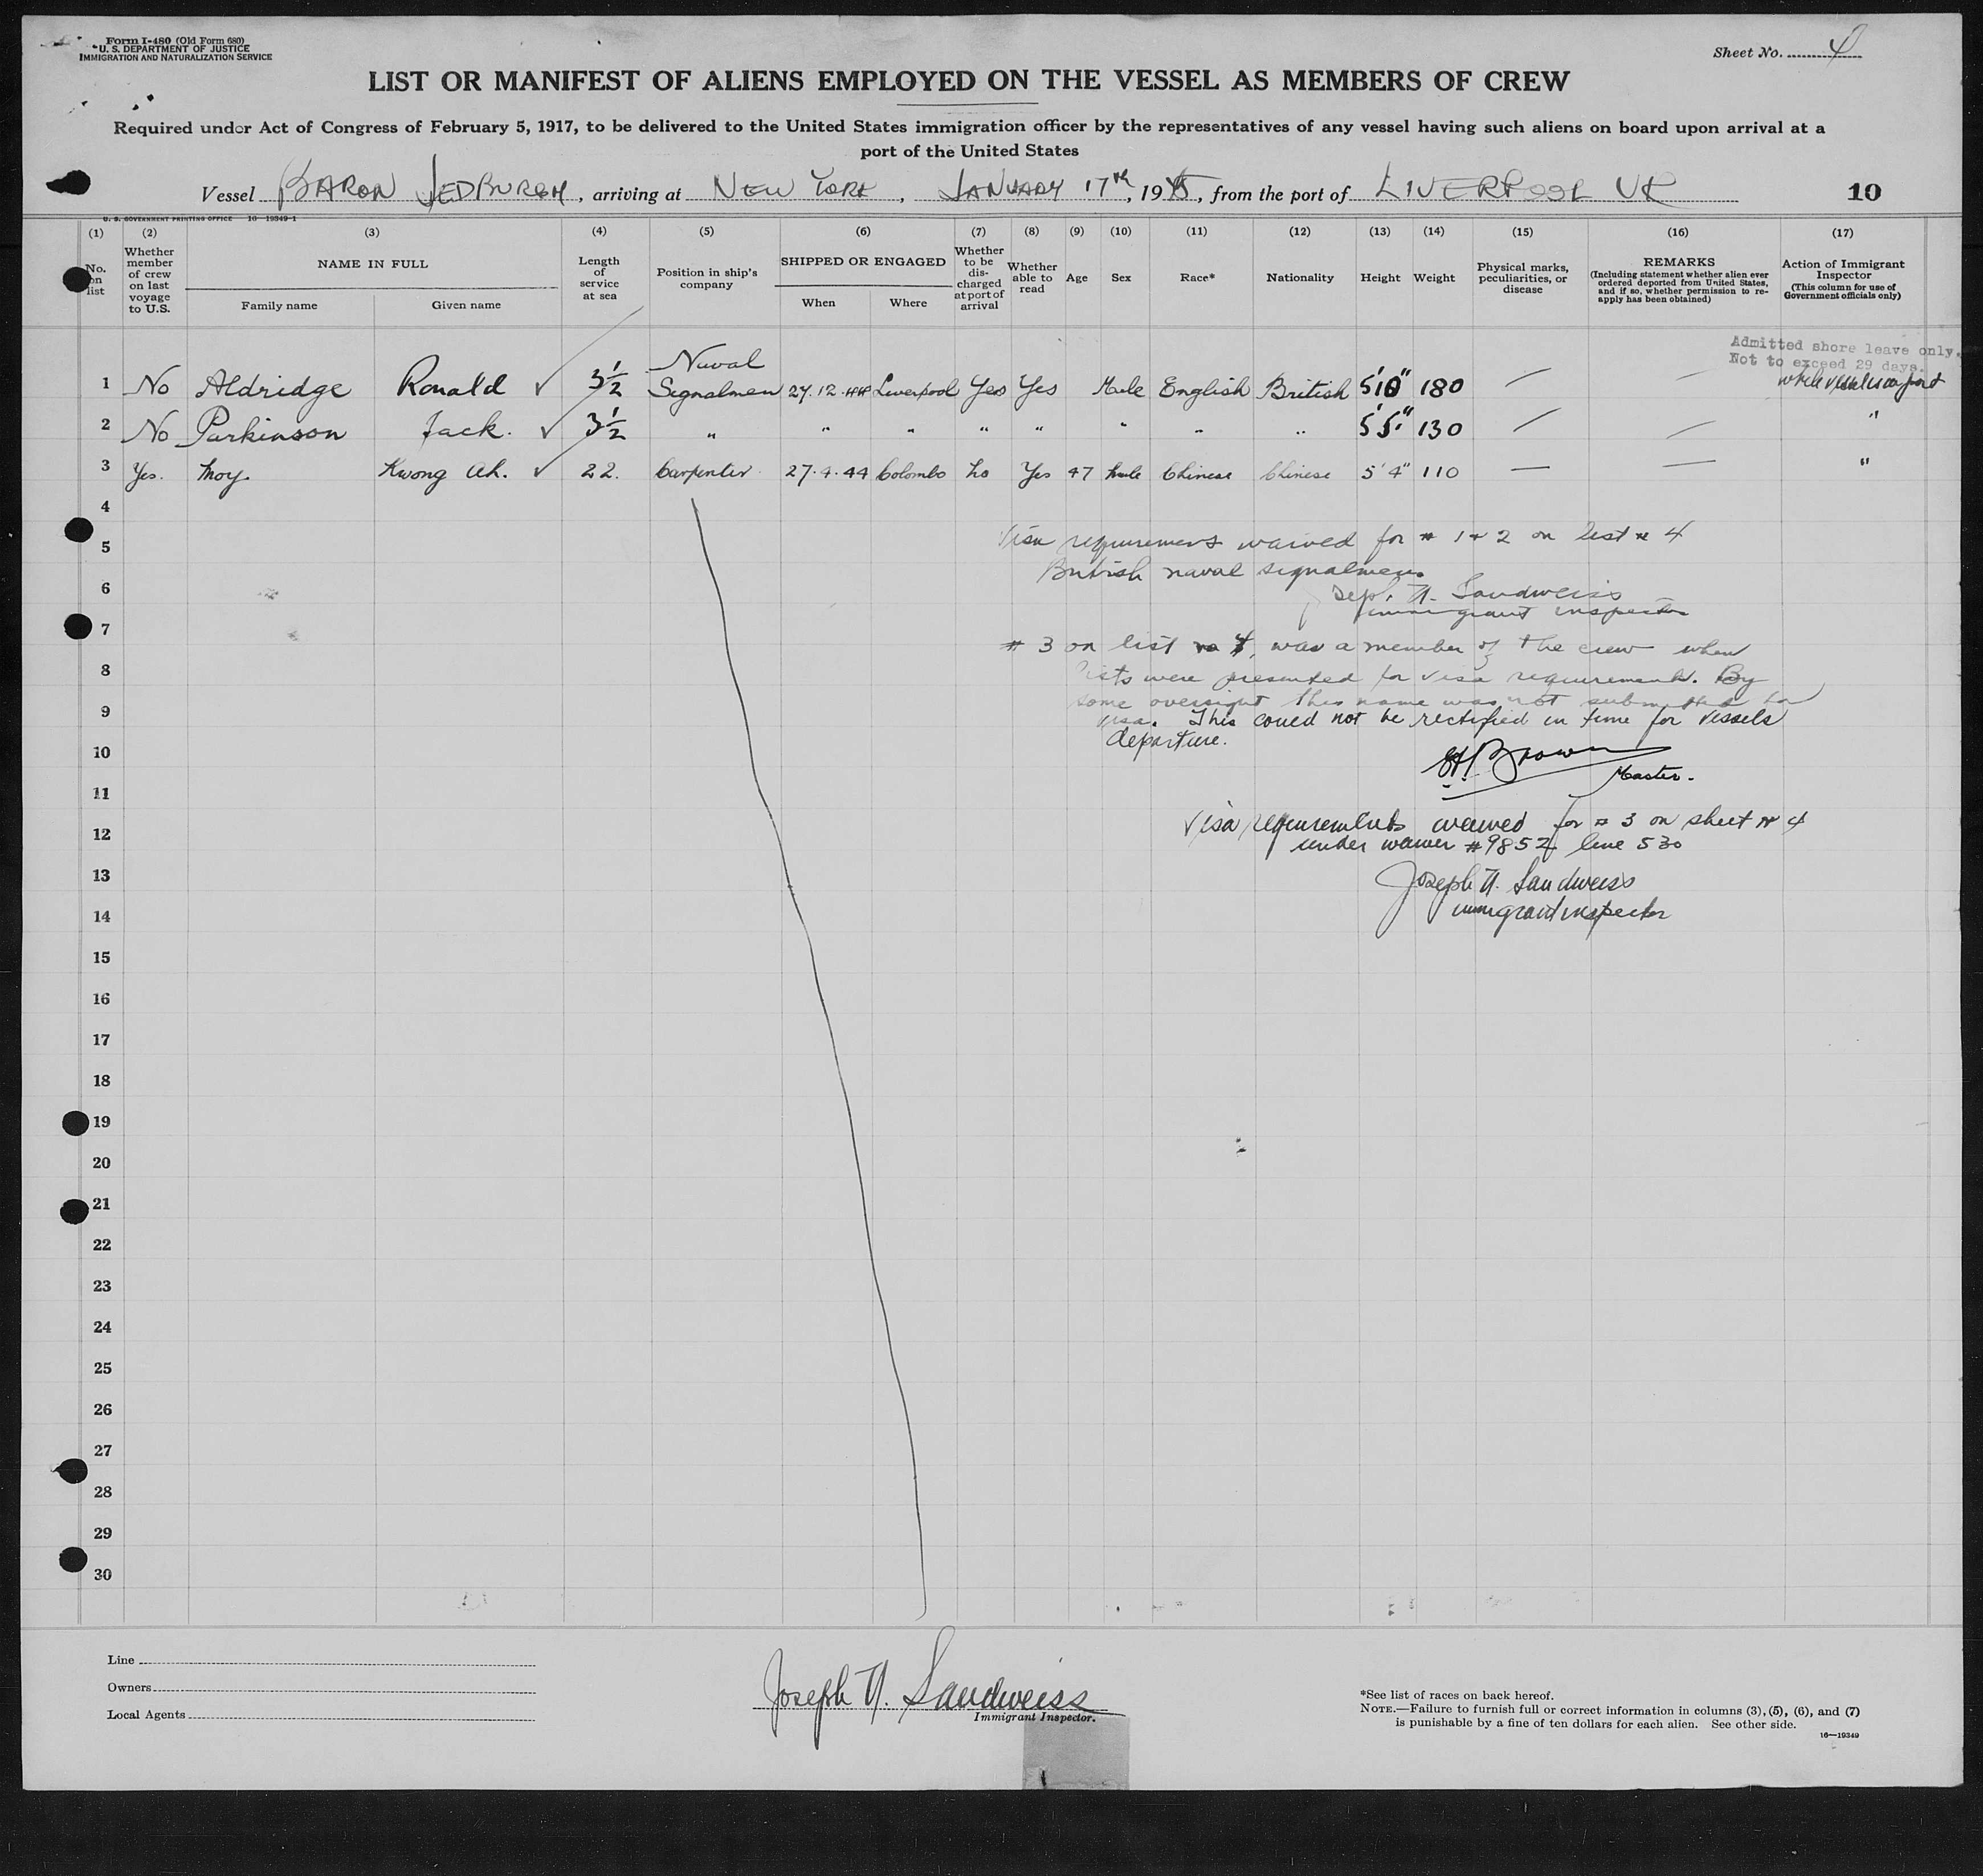 Form I-480 (Old Form 680)
U. S. DEPARTMENT OF JUSTICE
IMMIGRATION AND NATURALIZATION SERVICE
Sheet No. 4
LIST OR MANIFEST OF ALIENS EMPLOYED ON THE VESSEL AS MEMBERS OF CREW
Required under Act of Congress of February 5, 1917, to be delivered to the United States immigration officer by the representatives of any vessel having such aliens on board upon arrival at a
port of the United States
Vessel BARON JEDBURGH, arriving at NEW YORK, JANUARY 17th, 1945, from the port of LIVERPOOL UK 10
U. S. GOVERNMENT PRINTING OFFICE 16—19349-1
(1) (2) (3) (4) (5) (6) (7) (8) (9) (10) (11) (12) (13) (14) (15) (16) (17)
No. on list
Whether member of crew on last voyage to U.S.
NAME IN FULL
Family name Given name
Length of service at sea
Position in ship's company
SHIPPED OR ENGAGED
When Where
Whether to be discharged at port of arrival
Whether able to read
Age
Sex
Race*
Nationality
Height
Weight
Physical marks, peculiarities, or disease
REMARKS
(Including statement whether alien ever ordered deported from United States, and if so, whether permission to reapply has been obtained)
Action of Immigrant Inspector
(This column for use of Government officials only)
Admitted shore leave only.
Not to exceed 29 days.
while vessel is in port
1 No Aldridge Ronald ✓ 3½ Naval Signalmen 27.12.44 Liverpool Yes Yes Male English British 5'10" 180 — —
2 No Parkinson Jack. ✓ 3½ " " " " " " " " 5'5" 130 — — "
3 Yes. Moy. Kwong Ah. ✓ 22. Carpenter 27.4.44 Colombo No Yes 47 Male Chinese Chinese 5'4" 110 — — "
4
5
6
7
8
9
10
11
12
13
14
15
16
17
18
19
20
21
22
23
24
25
26
27
28
29
30
Visa requirements waived for # 1 & 2 on list # 4
British naval signalmen.
Joseph N. Sandweiss
immigrant inspector
# 3 on list no 4, was a member of the crew when
lists were presented for visa requirements. By
some oversight this name was not submitted for
visa. This could not be rectified in time for vessels
departure.
Brown
Master.
Visa requirements waived for # 3 on sheet # 4
under waiver #9852 line 530
Joseph N. Sandweiss
immigrant inspector
Line
Owners
Local Agents
Joseph N. Sandweiss
Immigrant Inspector.
*See list of races on back hereof.
NOTE.—Failure to furnish full or correct information in columns (3), (5), (6), and (7)
is punishable by a fine of ten dollars for each alien. See other side.
16—19349